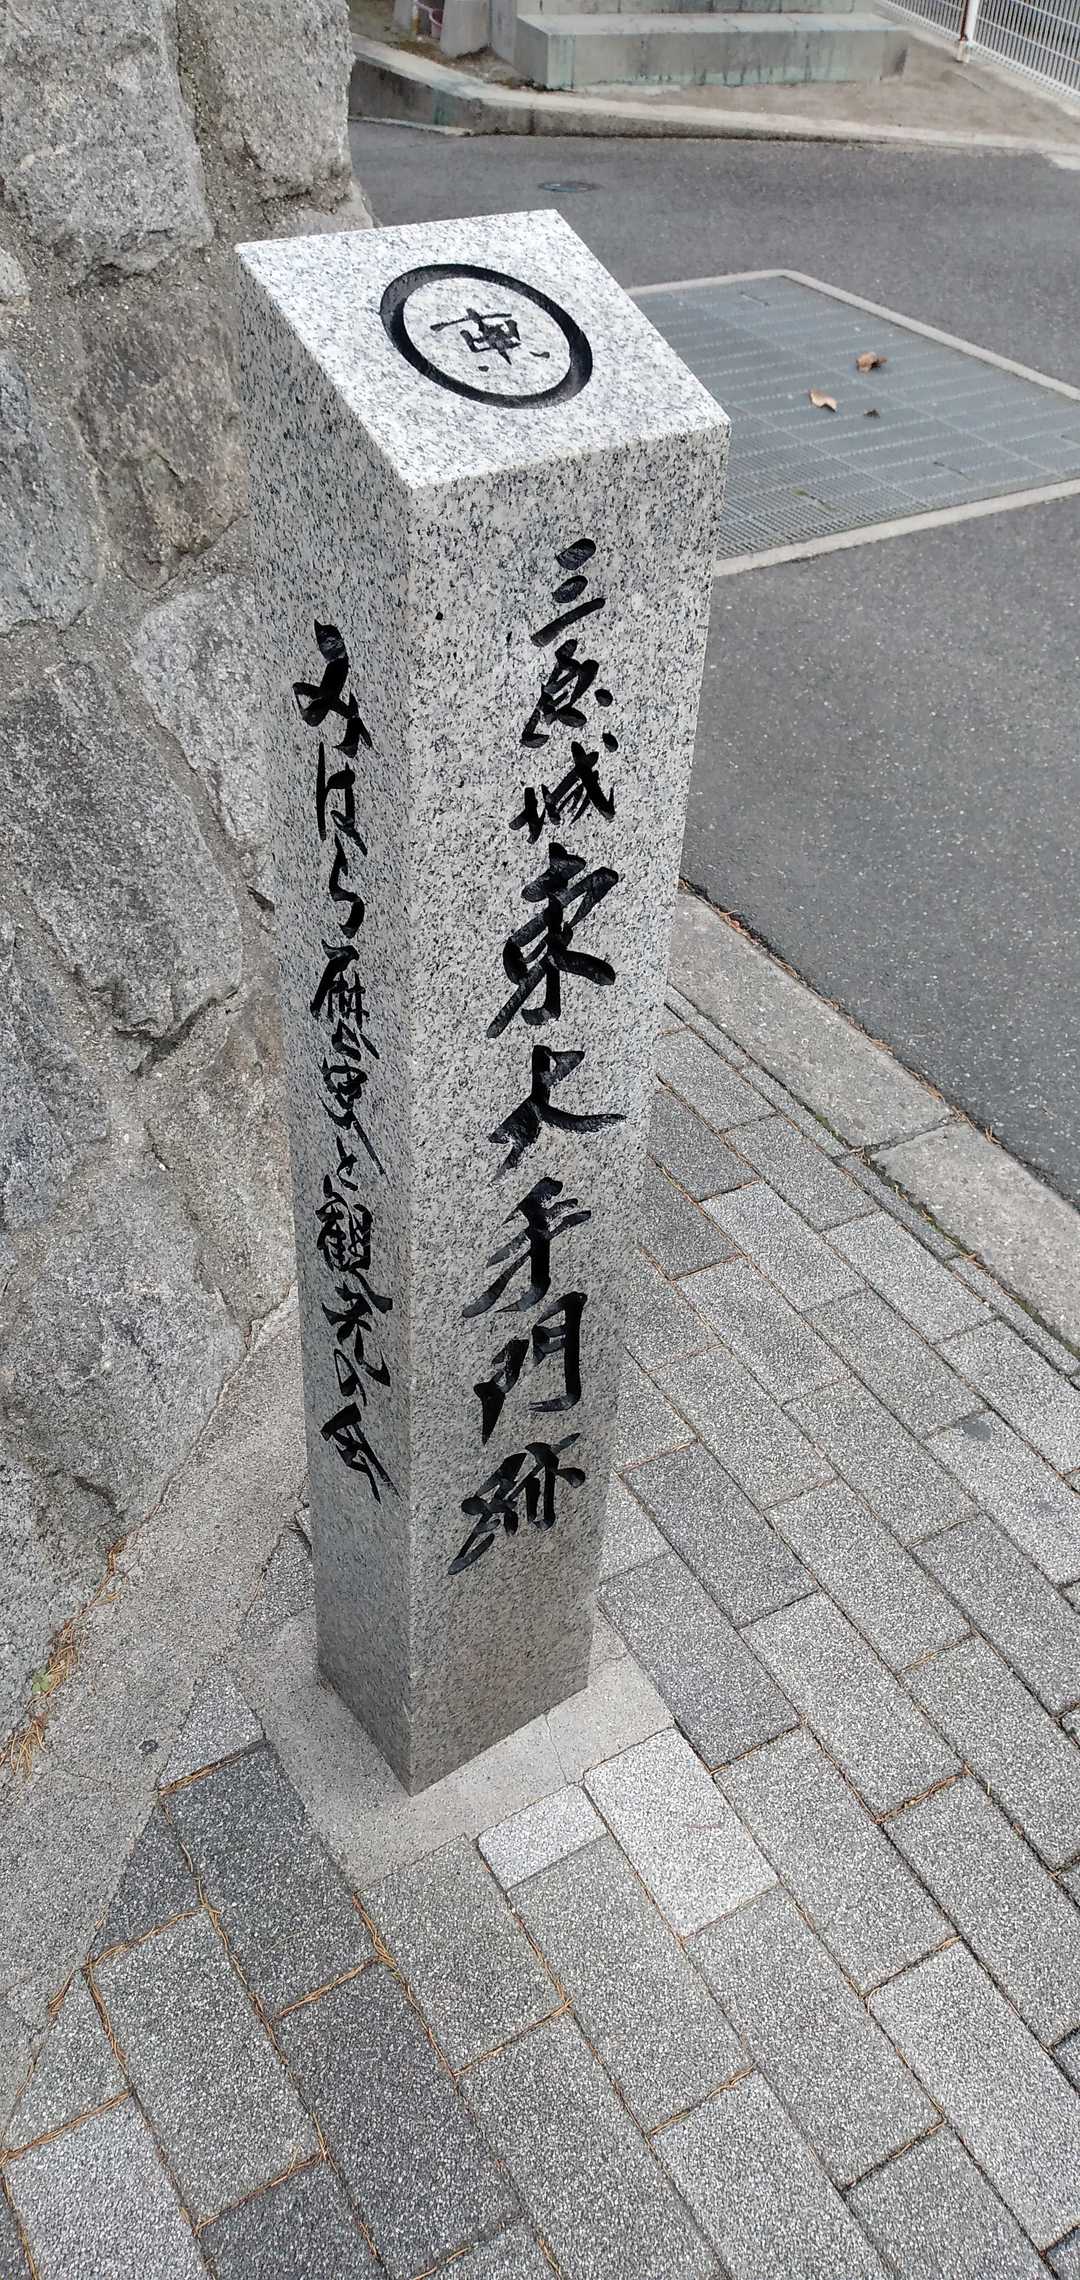 東
三原城東大手門跡
みはら歴史と観光の会